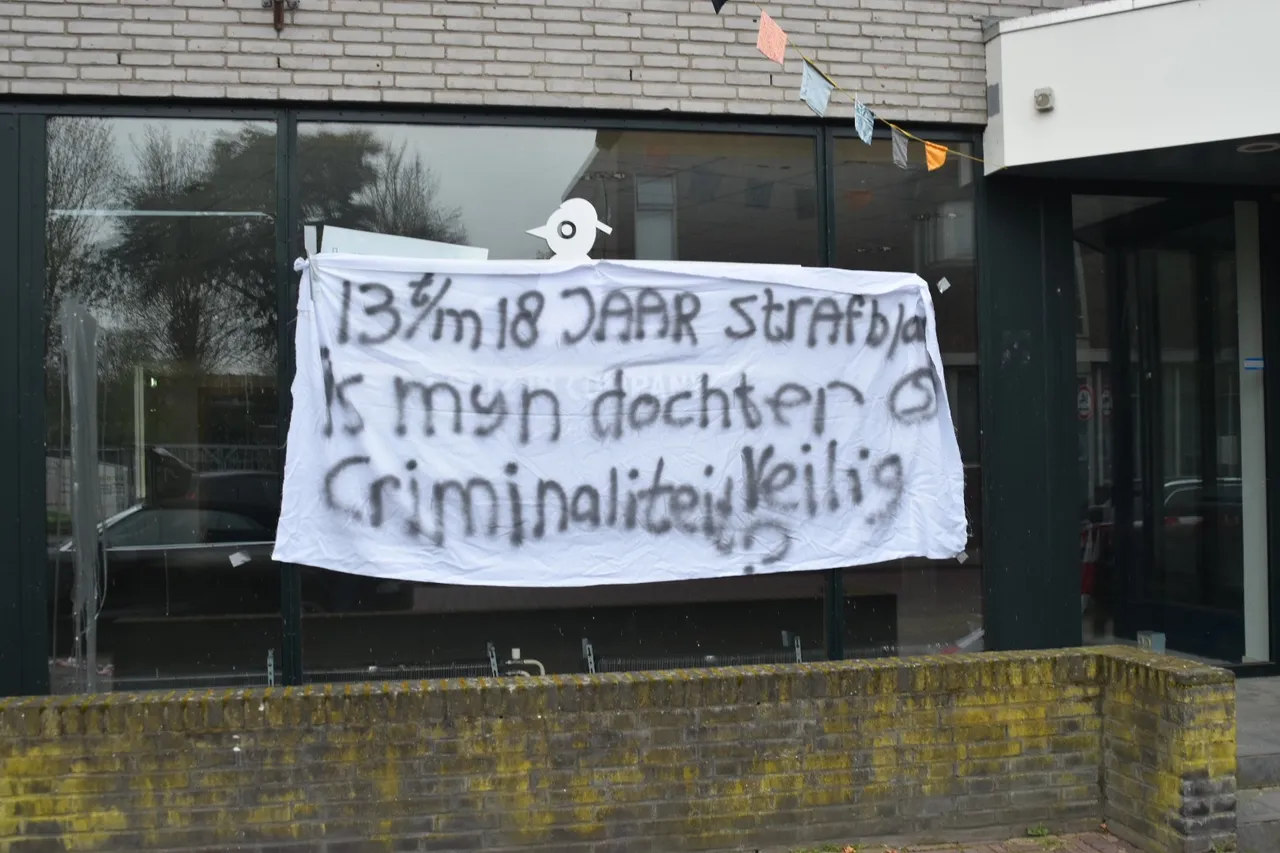 13 t/m 18 JAAR strafbla
is myn dochter
Criminaliteit Veilig
?